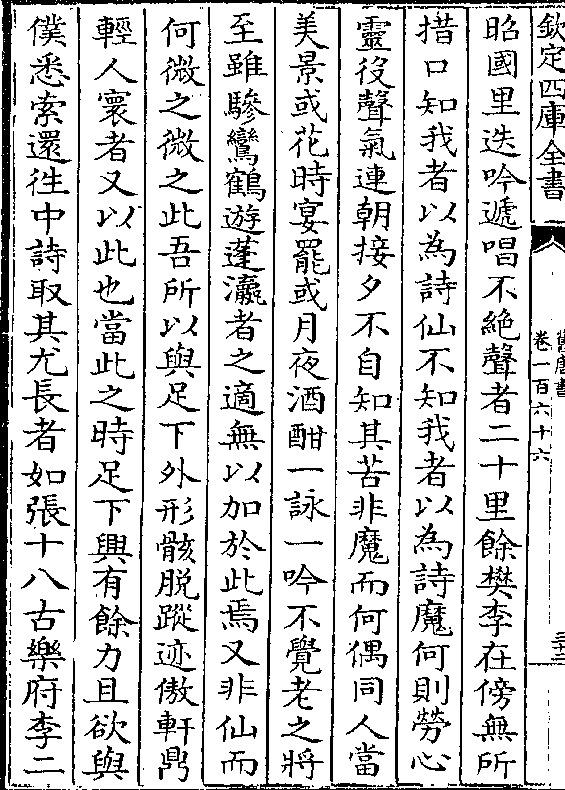 欽定四庫全書
舊唐書
卷一百六十六
三十三
昭國里迭吟遞唱不絶聲者二十里餘樊李在傍無所
措口知我者以為詩仙不知我者以為詩魔何則勞心
靈役聲氣連朝接夕不自知其苦非魔而何偶同人當
美景或花時宴罷或月夜酒酣一詠一吟不覺老之將
至雖驂鸞鶴遊蓬瀛者之適無以加於此焉又非仙而
何微之微之此吾所以與足下外形骸脱蹤迹傲軒鼎
輕人寰者又以此也當此之時足下興有餘力且欲與
僕悉索還徃中詩取其尤長者如張十八古樂府李二